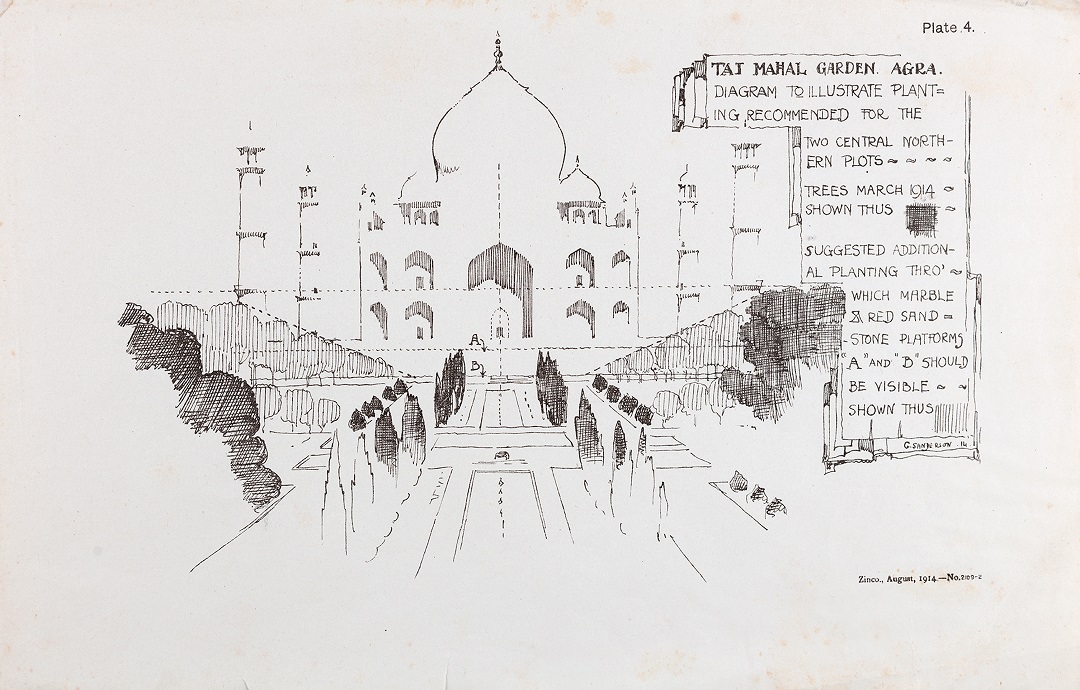 Plate 4.
TAJ MAHAL GARDEN. AGRA.
DIAGRAM TO ILLUSTRATE PLANT=
ING RECOMMENDED FOR THE
TWO CENTRAL NORTH-
ERN PLOTS ~ ~ ~ ~
TREES MARCH 1914 ~
SHOWN THUS ~
SUGGESTED ADDITION-
AL PLANTING THRO' ~
WHICH MARBLE
& RED SAND =
STONE PLATFORMS
"A" AND "B" SHOULD
BE VISIBLE ~ ~
SHOWN THUS
G. SANDERSON. 14.
A
B
Zinco., August, 1914.—No.2109-2